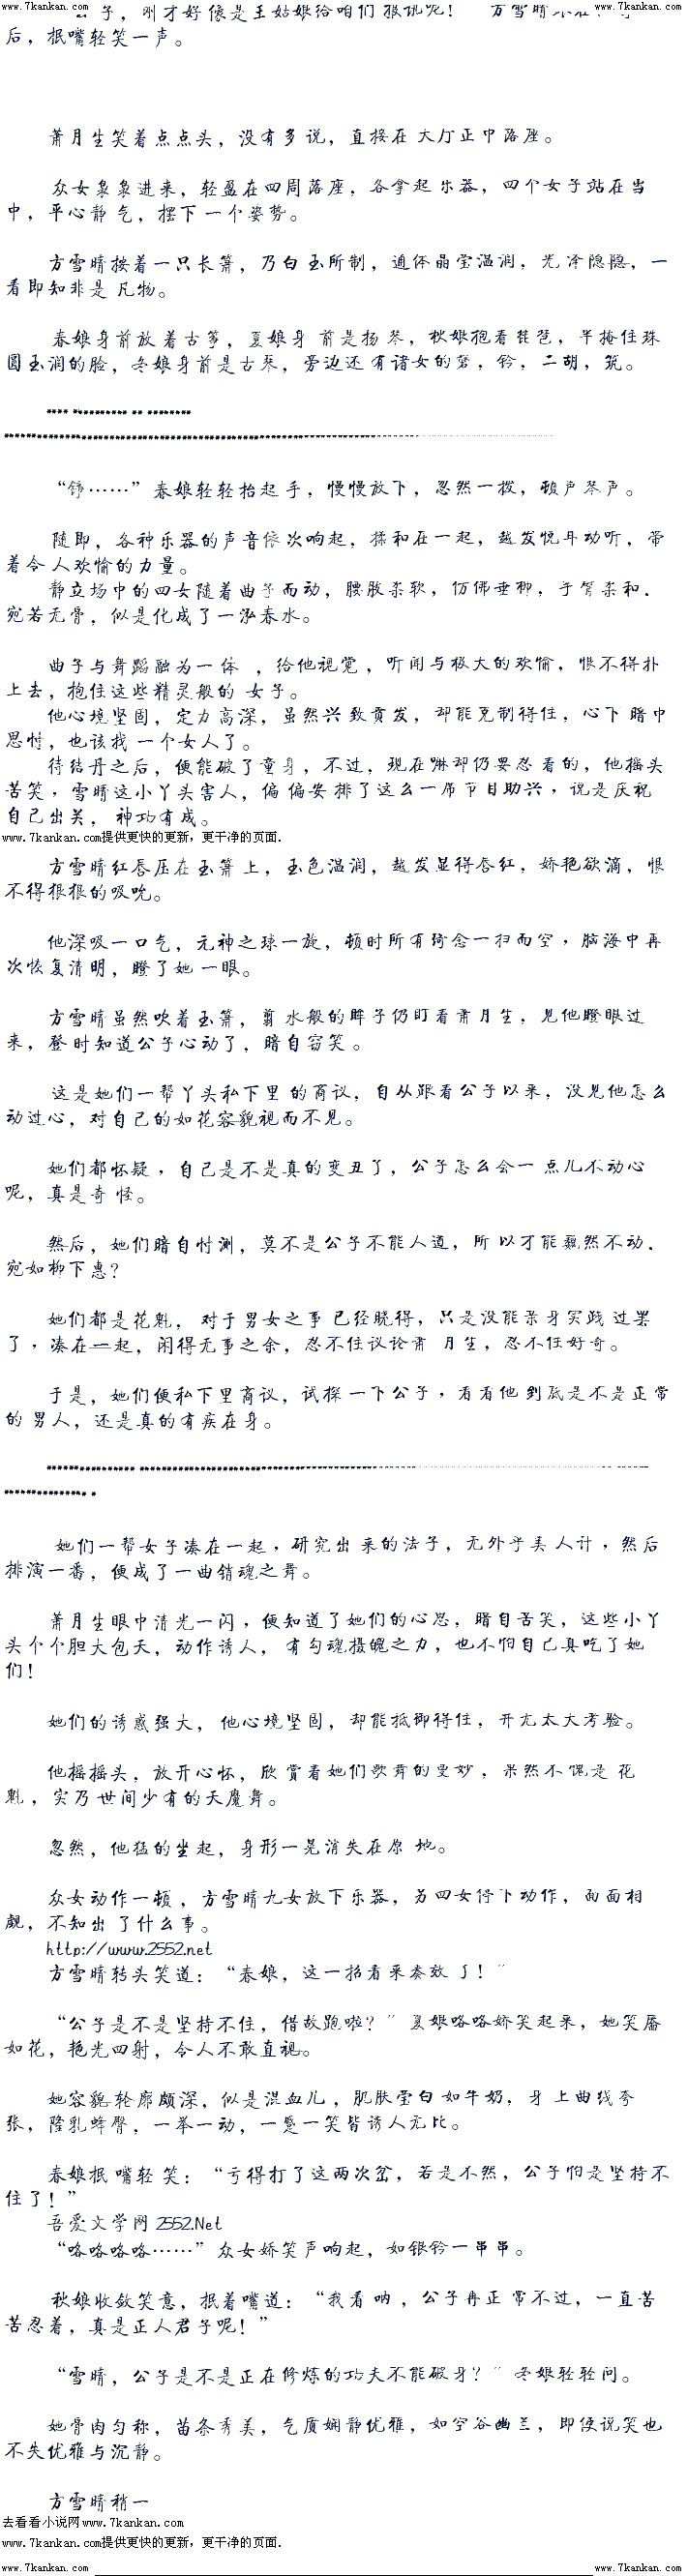 www.7kankan.com www.7kankan.com
子，刚才好像是王姑娘给咱们报讯呢！ 方雪晴
后，抿嘴轻笑一声。
萧月生笑着点点头，没有多说，直接在大厅正中落座。
众女袅袅进来，轻盈在四周落座，各拿起乐器，四个女子站在当
中，平心静气，摆下一个姿势。
方雪晴按着一只长箫，乃白玉所制，通体晶莹温润，光泽隐隐，一
看即知非是凡物。
春娘身前放着古筝，夏娘身前是扬琴，秋娘抱着琵琶，半掩住珠
圆玉润的脸，冬娘身前是古琴，旁边还有诸女的磬，铃，二胡，筑。
**** ********** ** ********
“铮……”春娘轻轻抬起手，慢慢放下，忽然一拨，顿声琴声。
随即，各种乐器的声音依次响起，揉和在一起，越发悦耳动听，带
着令人欢愉的力量。
静立场中的四女随着曲子而动，腰肢柔软，仿佛垂柳，手臂柔和．
宛若无骨，似是化成了一泓春水。
曲子与舞蹈融为一体，给他视觉，听闻与极大的欢愉，恨不得扑
上去，抱住这些精灵般的女子。
他心境坚固，定力高深，虽然兴致贲发，却能克制得住，心下暗中
思忖，也该找一个女人了。
待结丹之后，便能破了童身，不过，现在嘛却仍要忍着的，他摇头
苦笑，雪晴这小丫头害人，偏偏安排了这么一席节目助兴，说是庆祝
自己出关，神功有成。
www.7kankan.com提供更快的更新，更干净的页面.
方雪晴红唇压在玉箫上，玉色温润，越发显得唇红，娇艳欲滴，恨
不得狠狠的吸吮。
他深吸一口气，元神之球一旋，顿时所有绮念一扫而空，脑海中再
次恢复清明，瞪了她一眼。
方雪晴虽然吹着玉箫，翦水般的眸子仍盯着萧月生，见他瞪眼过
来，登时知道公子心动了，暗自窃笑。
这是她们一帮丫头私下里的商议，自从跟着公子以来，没见他怎么
动过心，对自己的如花容貌视而不见。
她们都怀疑，自己是不是真的变丑了，公子怎么会一点儿不动心
呢，真是奇怪。
然后，她们暗自忖测，莫不是公子不能人道，所以才能飘然不动．
宛如柳下惠？
她们都是花魁，对于男女之事已经晓得，只是没能亲身实践过罢
了，凑在一起，闲得无事之余，忍不住议论萧月生，忍不住好奇。
于是，她们便私下里商议，试探一下公子，看看他到底是不是正常
的男人，还是真的有疾在身。
她们一帮女子凑在一起，研究出来的法子，无外乎美人计，然后
排演一番，便成了一曲销魂之舞。
萧月生眼中清光一闪，便知道了她们的心思，暗自苦笑，这些小丫
头个个胆大包天，动作诱人，有勾魂摄魄之力，也不怕自己真吃了她
们！
她们的诱惑强大，他心境坚固，却能抵御得住，并无太大考验。
他摇摇头，放开心怀，欣赏着她们歌舞的曼妙，果然不愧是花
魁，实乃世间少有的天魔舞。
忽然，他猛的坐起，身形一晃消失在原地。
众女动作一顿，方雪晴九女放下乐器，另四女停下动作，面面相
觑，不知出了什么事。
http://www.2552.net
方雪晴转头笑道：“春娘，这一招看来奏效了！”
“公子是不是坚持不住，借故跑啦？”夏娘咯咯娇笑起来，她笑靥
如花，艳光四射，令人不敢直视。
她容貌轮廓颇深，似是混血儿，肌肤莹白如牛奶，身上曲线夸
张，隆乳蜂臀，一举一动，一颦一笑皆诱人无比。
春娘抿嘴轻笑：“亏得打了这两次岔，若是不然，公子怕是坚持不
住了！”
吾爱文学网 2552.Net
“咯咯咯咯……”众女娇笑声响起，如银铃一串串。
秋娘收敛笑意，抿着嘴道：“我看呐，公子再正常不过，一直苦
苦忍着，真是正人君子呢！”
“雪晴，公子是不是正在修炼的功夫不能破身？”冬娘轻轻问。
她骨肉匀称，苗条秀美，气质娴静优雅，如空谷幽兰，即便说笑也
不失优雅与沉静。
方雪晴稍一
去看看小说网www.7kankan.com
www.7kankan.com提供更快的更新，更干净的页面.
www.7kankan.com www.7kankan.com